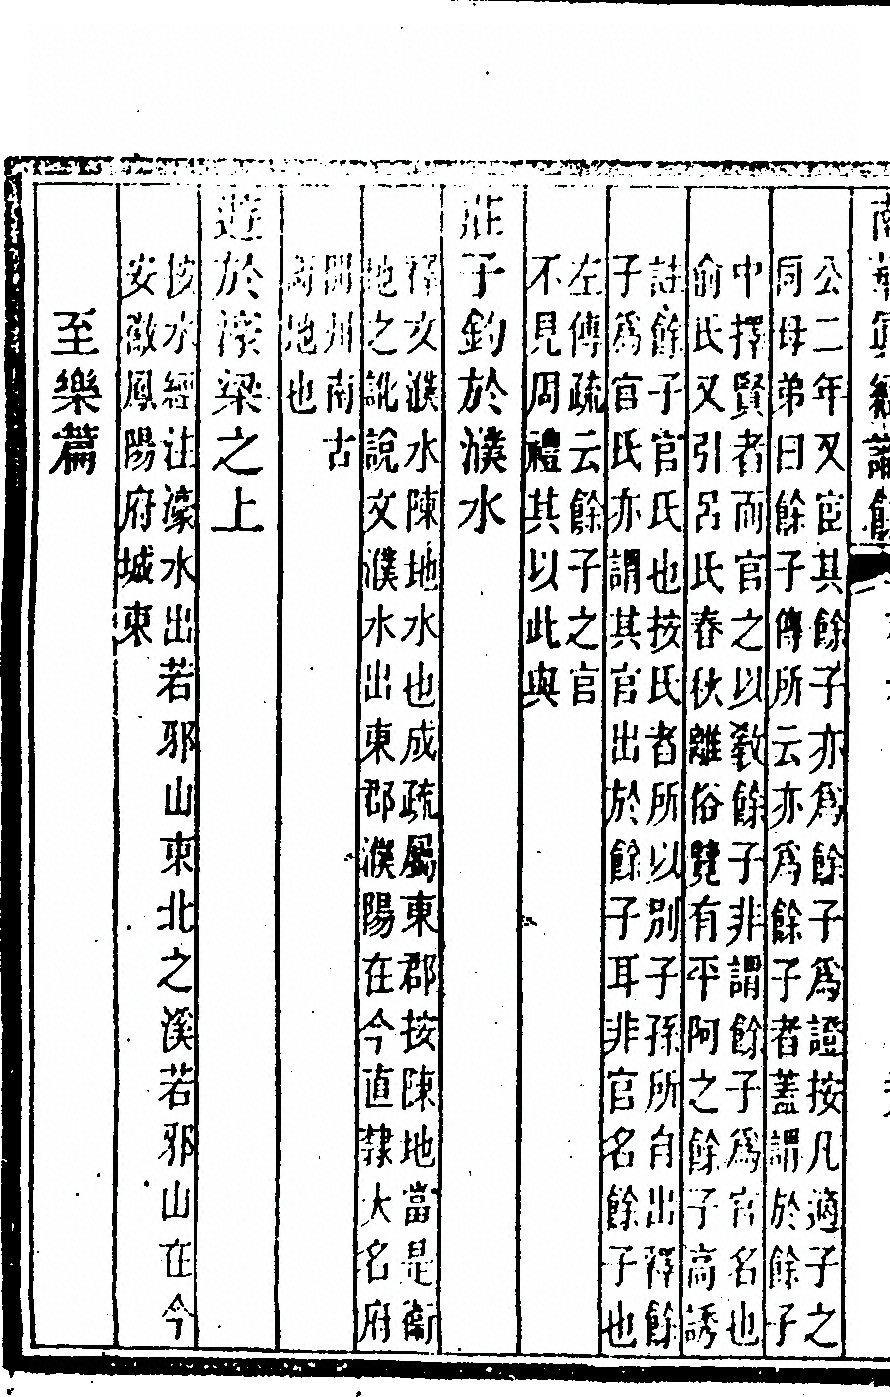 公二年又宦其餘子亦爲餘子爲證按凡適子之
同母弟曰餘子傳所云亦爲餘子者蓋謂於餘子
中擇賢者而官之以教餘子非謂餘子爲官名也
俞氏又引呂氏春秋離俗覽有平阿之餘子高誘
註餘子官氏也按氏者所以別子孫所自出釋餘
子爲官氏亦謂其官出於餘子耳非官名餘子也
左傳疏云餘子之官
不見周禮其以此與
莊子釣於濮水
釋文濮水陳地水也成疏屬東郡按陳地當是衞
地之訛說文濮水出東郡濮陽在今直隸大名府
開州南古
衞地也
遊於濠梁之上
按水經注濠水出若邪山東北之溪若邪山在今
安徽鳳陽府城東
至樂篇